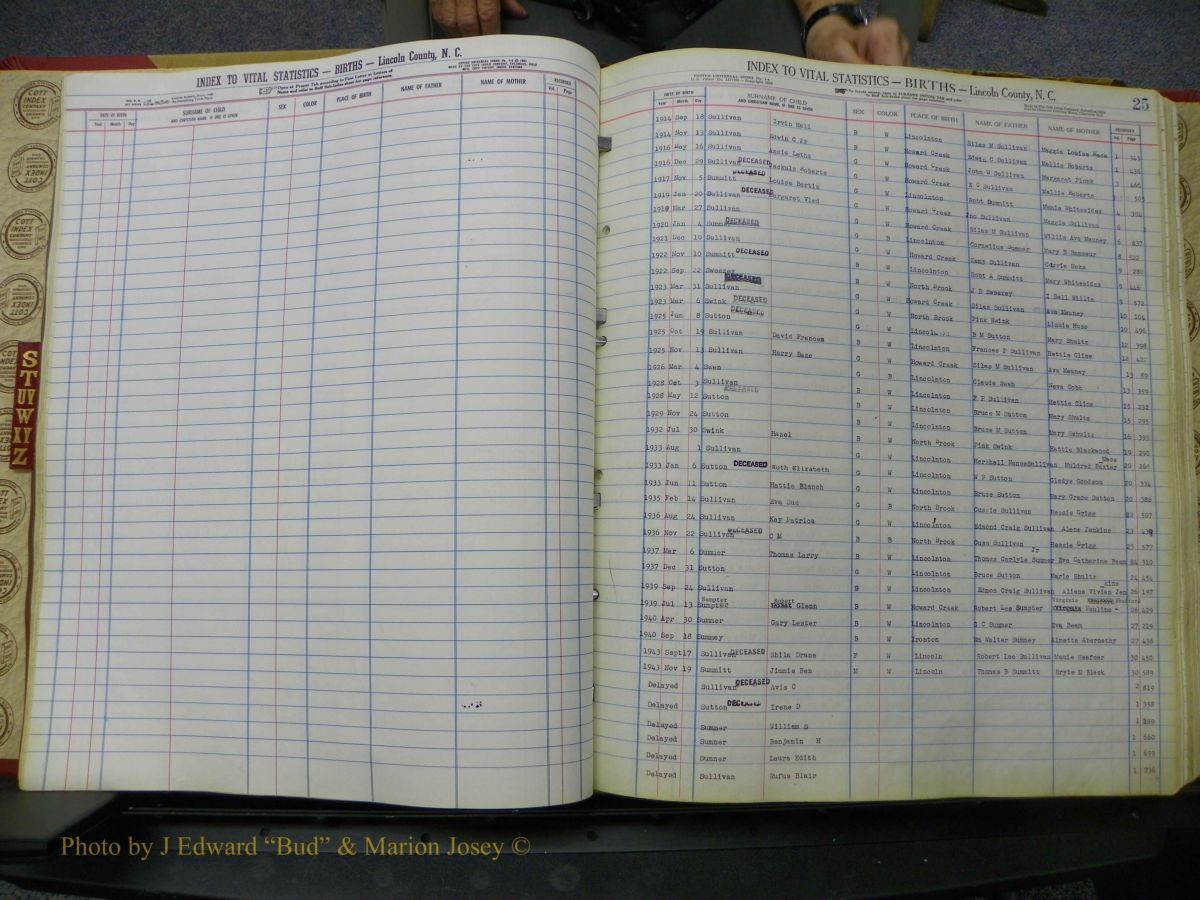 INDEX TO VITAL STATISTICS — BIRTHS — Lincoln County, N. C.
DATE OF BIRTH SURNAME OF CHILD SEX COLOR PLACE OF BIRTH NAME OF FATHER NAME OF MOTHER RECORDED
Year Month Day AND CHRISTIAN NAME, IF ONE IS GIVEN Vol. Page
COTT INDEX COMPANY
S T UV W YZ
INDEX TO VITAL STATISTICS — BIRTHS — Lincoln County, N. C. 25
DATE OF BIRTH SURNAME OF CHILD SEX COLOR PLACE OF BIRTH NAME OF FATHER NAME OF MOTHER RECORDED
Year Month Day AND CHRISTIAN NAME, IF ONE IS GIVEN Vol. Page
1914 Sep 18 Sullivan Irvin Hall B W Lincolnton Silas M Sullivan Maggie Louise 1 343
1914 Nov 13 Sullivan Edwin C Jr B W Howard Creek Edwin C Sullivan Mallie Roberts 1 436
1916 May 16 Sullivan Annie Letha G W Howard Creek John W Sullivan Margaret Plonk 3 466
1916 Dec 29 Sullivan DECEASED Roberts G W Howard Creek E C Sullivan Mallie Roberts 3 503
1917 Nov 5 Summitt DECEASED Louise Bertie G W Lincolnton Robt Summitt Mamie Whitesides 4 394
1919 Jan 20 Sullivan DECEASED Margaret G W Howard Creek Sullivan Maggie Sullivan 6
1919 Mar 27 Sullivan G W Howard Creek Silas M Sullivan Willie Ava Mauney 6 437
1920 Jan 4 Sumner DECEASED G B Lincolnton Cornelius Sumner Mary E Ramseur 8 522
1921 Dec 10 Sullivan G W Howard Creek Sullivan Carrie Hoke 9 280
1922 Nov 10 Summitt DECEASED B W Lincolnton Robt A Summitt Mary Whitesides 9 446
1922 Sep 22 Sweezey DECEASED B W North Brook J D Sweezey I Bell Willis 9 572
1923 Mar 31 Sullivan G W Howard Creek Silas Sullivan Ava Mauney 10 104
1923 Mar 6 Swink DECEASED G W North Brook Pink Swink Lizzie Huss 10 496
1925 Jun 8 Sutton DECEASED G W Lincolnton B M Sutton Mary Shultz 12 398
1925 Oct 19 Sullivan David Frances B W Lincolnton Frances P Sullivan Hattie Cline 12 427
1925 Nov 13 Sullivan Harry Dane B W Howard Creek Silas M Sullivan Ava Mauney 13 89
1926 Mar 4 Swan G B Lincolnton Claude Swan Neva Cobb 13 359
1928 Oct 3 Sullivan DECEASED B W Lincolnton F P Sullivan Hettie Cline 15 232
1928 May 12 Sutton B W Lincolnton Bruce M Sutton Mary Shultz 15 295
1929 Nov 24 Sutton B W Lincolnton Bruce M Sutton Mary Shultz 16 393
1932 Jul 30 Swink Hazel B W North Brook Pink Swink Hettie Blackwood 19 290
1933 Aug 1 Sullivan G W Lincolnton Hershall Sullivan Muldred Baxter 20 266
1933 Jan 6 Sutton DECEASED Ruth Elizabeth G W Lincolnton W P Sutton Gladys Goodson 20 334
1933 Jun 11 Sutton Hattie Blanch G W Lincolnton Bruce Sutton Mary Grace Sutton 20 386
1935 Feb 14 Sullivan Eva Sue G B North Brook Sullivan Bessie Grigg 22 507
1936 Aug 24 Sullivan Kay Patrica G W Lincolnton Edmond Craig Sullivan Alene Jenkins 23
1936 Nov 22 Sullivan DECEASED C M B B North Brook Guss Sullivan Hessie Grigg 23 577
1937 Mar 6 Sumner Thomas Larry B W Lincolnton Thomas Carlyle Sumner Jr Eva Catherine Beam 24 310
1937 Dec 31 Sutton G W Lincolnton Bruce Sutton Marie Shultz 24 454
1939 Sep 24 Sullivan G W Lincolnton Edmon Craig Sullivan Aliene Vivian Jenkins 26 197
1939 Jul 13 Sumpter Robert Glenn B W Howard Creek Robert Lee Sumpter Virginia Pauline 26 429
1940 Apr 30 Sumner Gary Lester B W Lincolnton G C Sumner Eva Beam 27 219
1940 Sep 18 Sumney B W Ironton Wm Walter Sumney Almetta Abernathy 27 438
1943 Sept 17 Sullivan DECEASED Shila Drane F W Lincoln Robert Lee Sullivan Mamie Heafner 30 450
1943 Nov 19 Summitt Jimmie Ben M W Lincoln Thomas B Summitt Bryte M Black 30 589
Delayed Sullivan DECEASED Avis C 2 819
Delayed Sutton DECEASED Irene D 1 358
Delayed Sumner William S 1 189
Delayed Sumner Benjamin H 1 660
Delayed Sumner Laura Edith 1 699
Delayed Sullivan Rufus Blair 1 736
Photo by J Edward “Bud” & Marion Josey ©